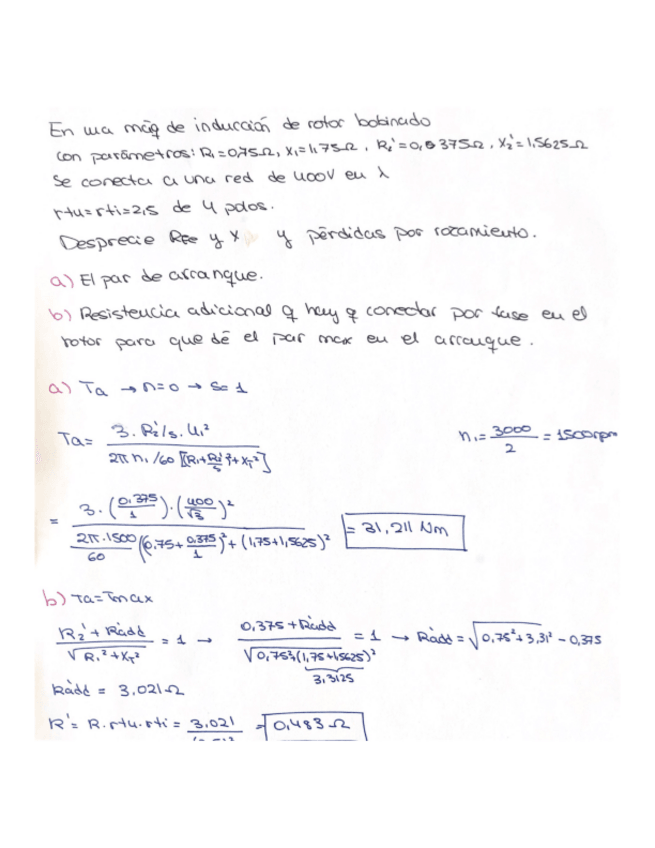 En una máq de inducción de rotor bobinado
con parámetros: R₁=0,75Ω, X₁=1,75Ω, R₂'=0,375Ω, X₂'=1,5625Ω
Se conecta a una red de 400V en λ
rtu=rti=2,5 de 4 polos.
Desprecie RFe y X y pérdidas por rozamiento.
a) El par de arranque.
b) Resistencia adicional q hay q conectar por fase en el
rotor para que dé el par max en el arranque.
a) Ta → n=0 → S=1
Ta= 3·R₂'/s·U₁² / 2π n₁/60 [(R₁+R₂'/s)²+X_T²]
n₁= 3000/2 = 1500rpm
= 3·(0,375/1)·(400/√3)² / 2π·1500/60 (0,75+0,375/1)²+(1,75+1,5625)² = 31,211 Nm
b) Ta=Tmax
R₂'+R'add / √R₁²+X_T² = 1 → 0,375+R'add / √0,75²+(1,75+1,5625)² = 1 → R'add = √0,75²+3,31² - 0,375
3,3125
R'add = 3,021Ω
R'= R·rtu·rti = 3,021 / = 0,483Ω